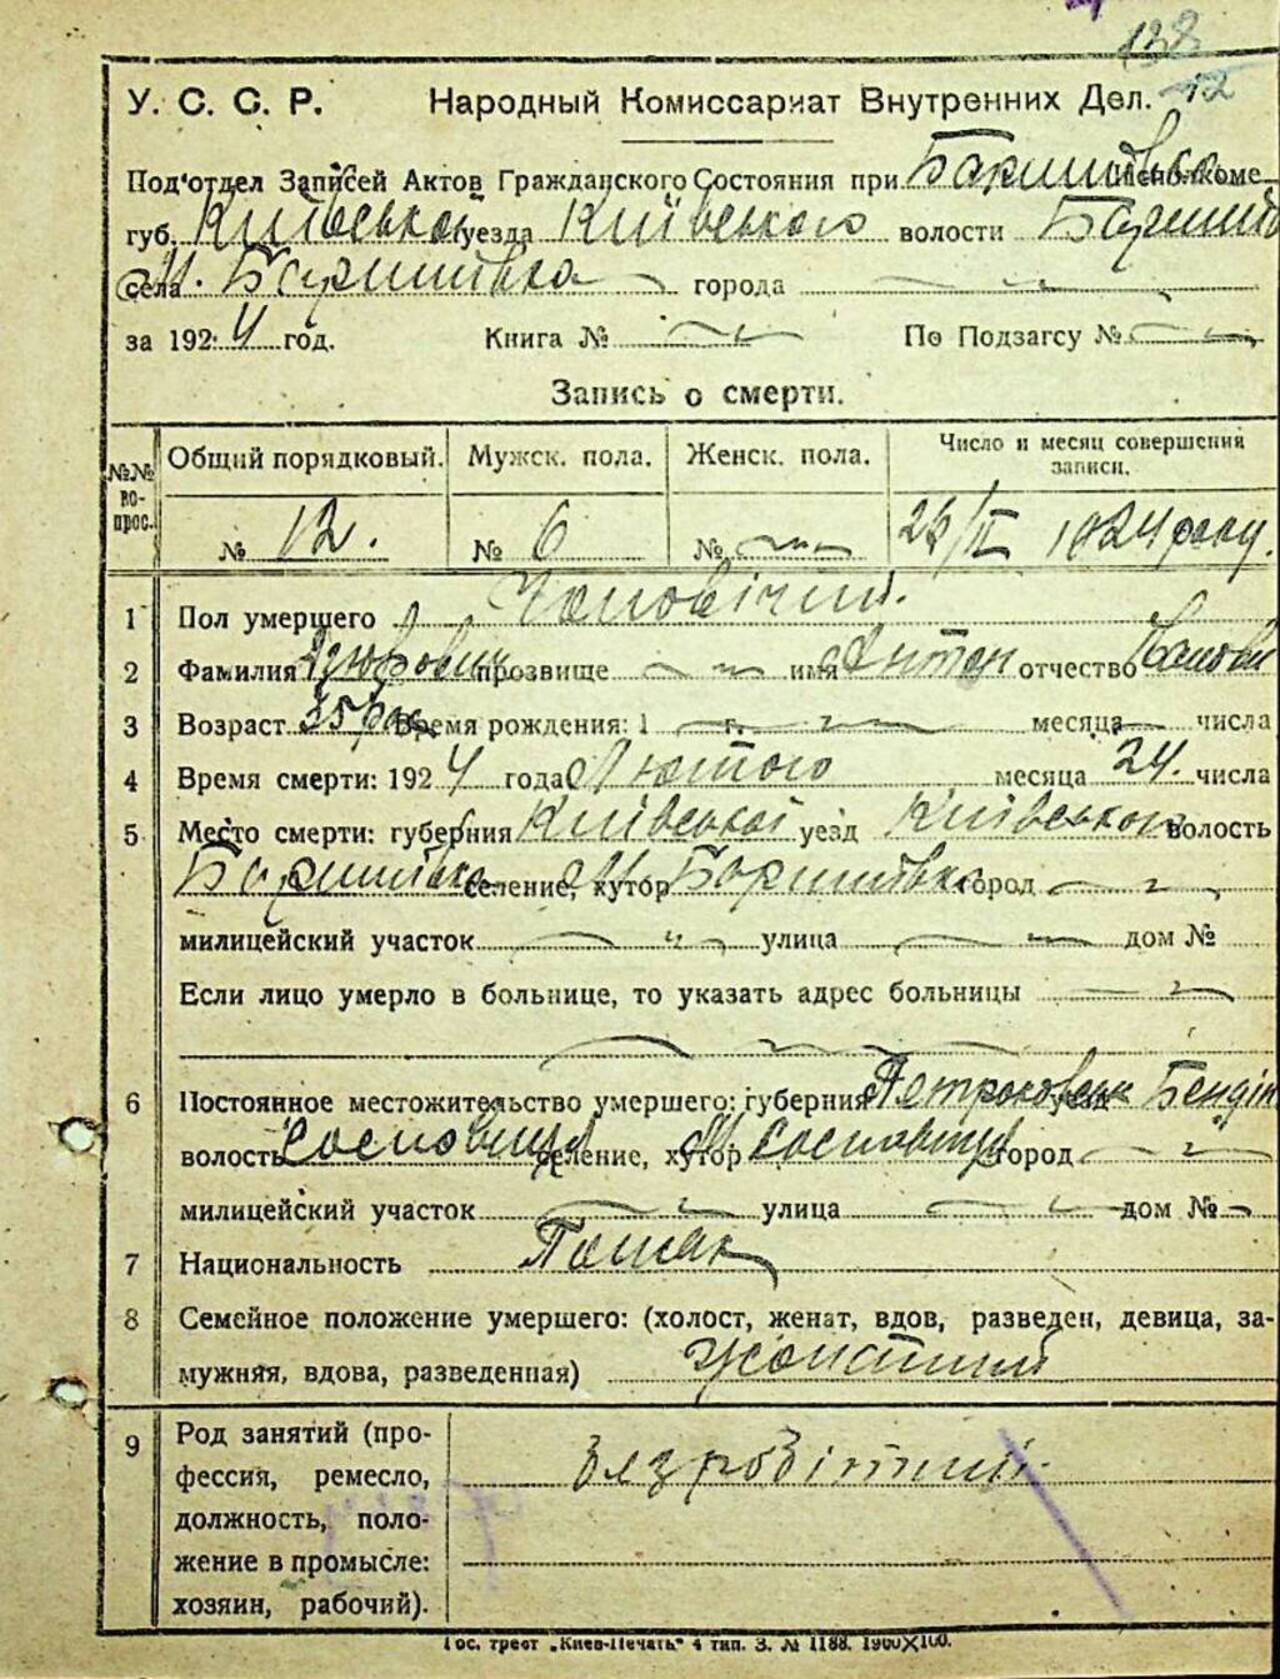 138
12
У. С. С. Р. Народный Комиссариат Внутренних Дел.
Под'отдел Записей Актов Гражданского Состояния при Баришівськ
губ. Київської уезда Київського волости Баришів
села м. Баришівка города
за 1924 год. Книга № По Подзагсу №
Запись о смерти.
№№ вопрос. Общий порядковый. Мужск. пола. Женск. пола. Число и месяц совершения записи.
№ 12. № 6 № /II 1924 року.
1 Пол умершего Чоловічий.
2 Фамилия прозвище имя Антон отчество
3 Возраст 35 рок Время рождения: 1 г. месяца числа
4 Время смерти: 1924 года Лютого месяца 24. числа
5 Место смерти: губерния Київської уезд Київського волость
Баришівка селение, хутор м. Баришівка город
милицейский участок улица дом №
Если лицо умерло в больнице, то указать адрес больницы
6 Постоянное местожительство умершего: губерния Петроковськ уезд Бендін
волость Сосновиці селение, хутор м. Сосновиці город
милицейский участок улица дом №
7 Национальность Поляк
8 Семейное положение умершего: (холост, женат, вдов, разведен, девица, за-
мужняя, вдова, разведенная) Жонатий
9 Род занятий (про-
фессия, ремесло, безробітний
должность, поло-
жение в промысле:
хозяин, рабочий).
Гос. трест „Киев-Печать" 4 тип. З. № 1188. 1900×100.